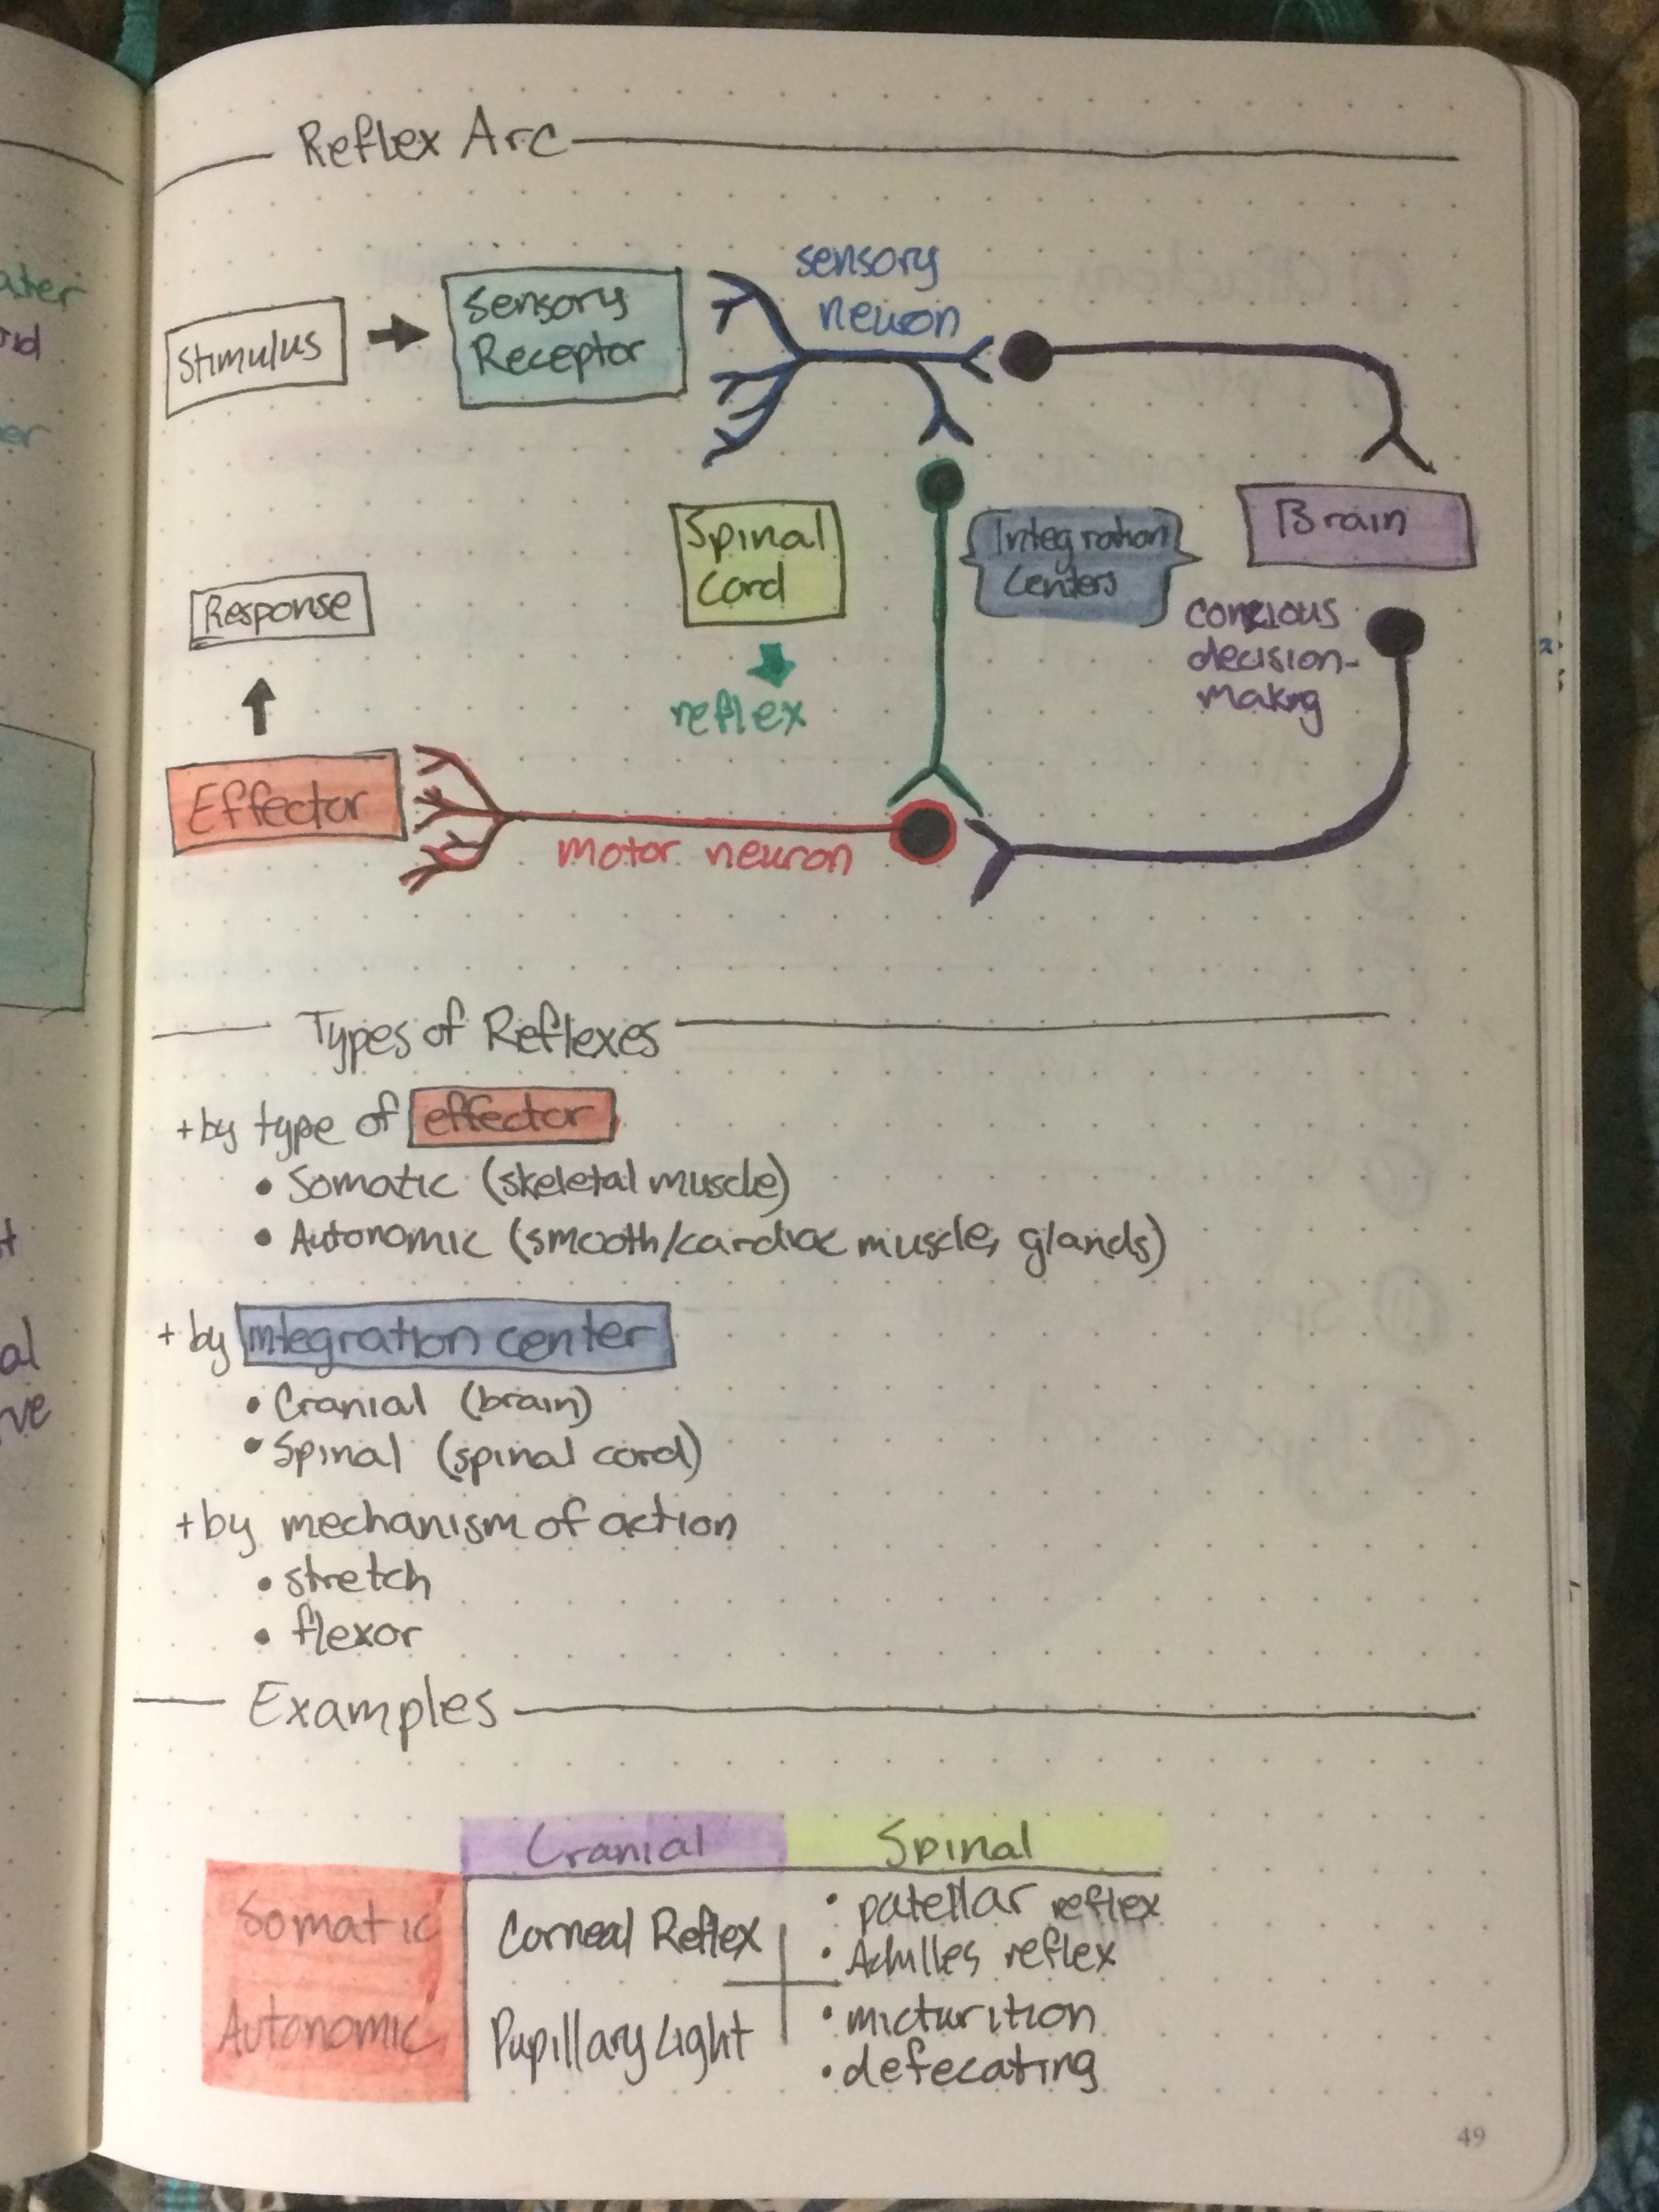 Reflex Arc
Stimulus
Sensory
Receptor
sensory
neuron
Spinal
Cord
reflex
Integration
Centers
Brain
concious
decision-
making
Response
Effector
motor neuron
Types of Reflexes
+ by type of effector
• Somatic (skeletal muscle)
• Autonomic (smooth/cardiac muscle, glands)
+ by integration center
• Cranial (brain)
• Spinal (spinal cord)
+ by mechanism of action
• stretch
• flexor
Examples
Cranial Spinal
Somatic
Corneal Reflex
• patellar reflex
• Achilles reflex
Autonomic
Pupillary Light
• micturition
• defecating
49